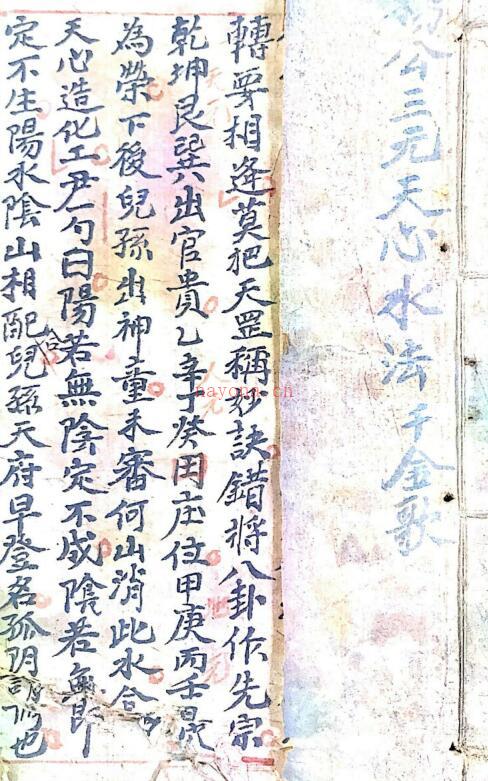 公三元天心水法千金歌
轉要相逢莫把天罡稱妙訣錯將八卦作先宗
乾坤艮巽出官貴乙辛丁癸田庄位甲庚丙壬是
為榮下後兒孫出神童未審何山消此水合
天心造化工尹勺曰陽若無陰定不成陰若無陽
定不生陽水陰山相配合兒孫天府早登名孤阴也
天元
人元
元
nayona.cn